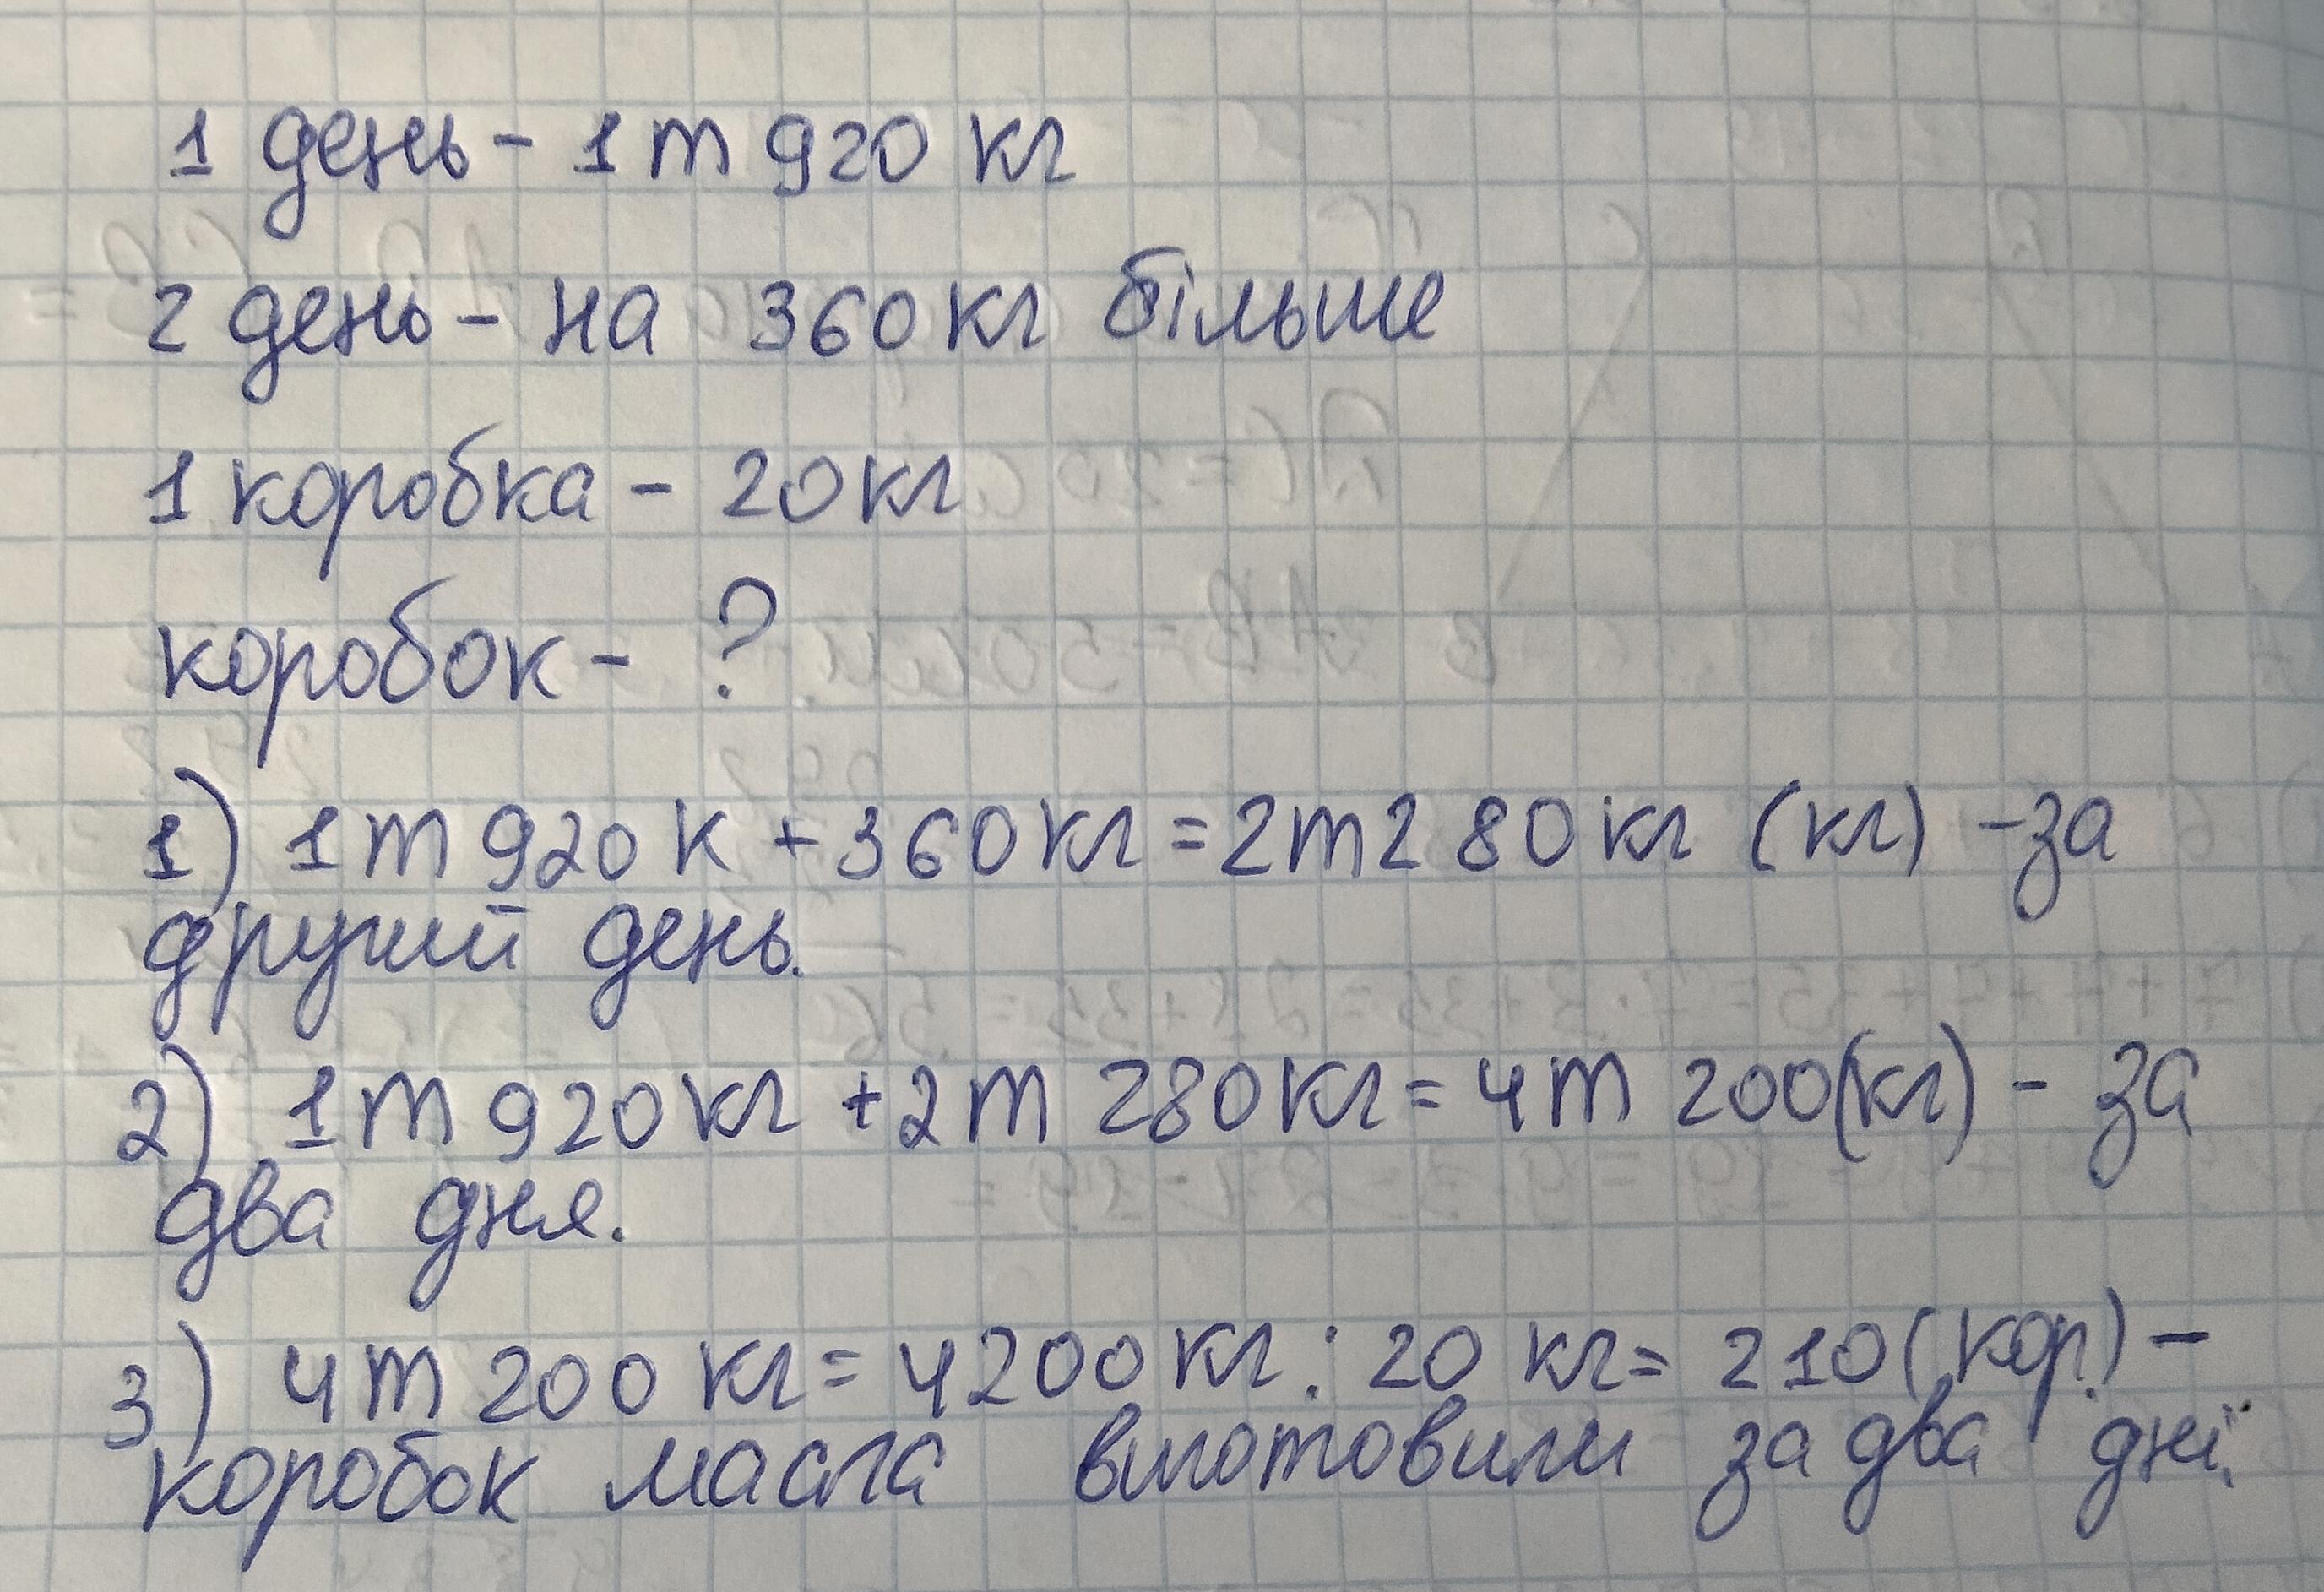 1 день - 1 т 920 кг
2 день - на 360 кг більше
1 коробка - 20 кг
коробок - ?
1) 1 т 920 к + 360 кг = 2 т 280 кг (кг) - за
другий день.
2) 1 т 920 кг + 2 т 280 кг = 4 т 200 (кг) - за
два дня.
3) 4 т 200 кг = 4200 кг : 20 кг = 210 (кор.) -
коробок масла виготовили за два дні.